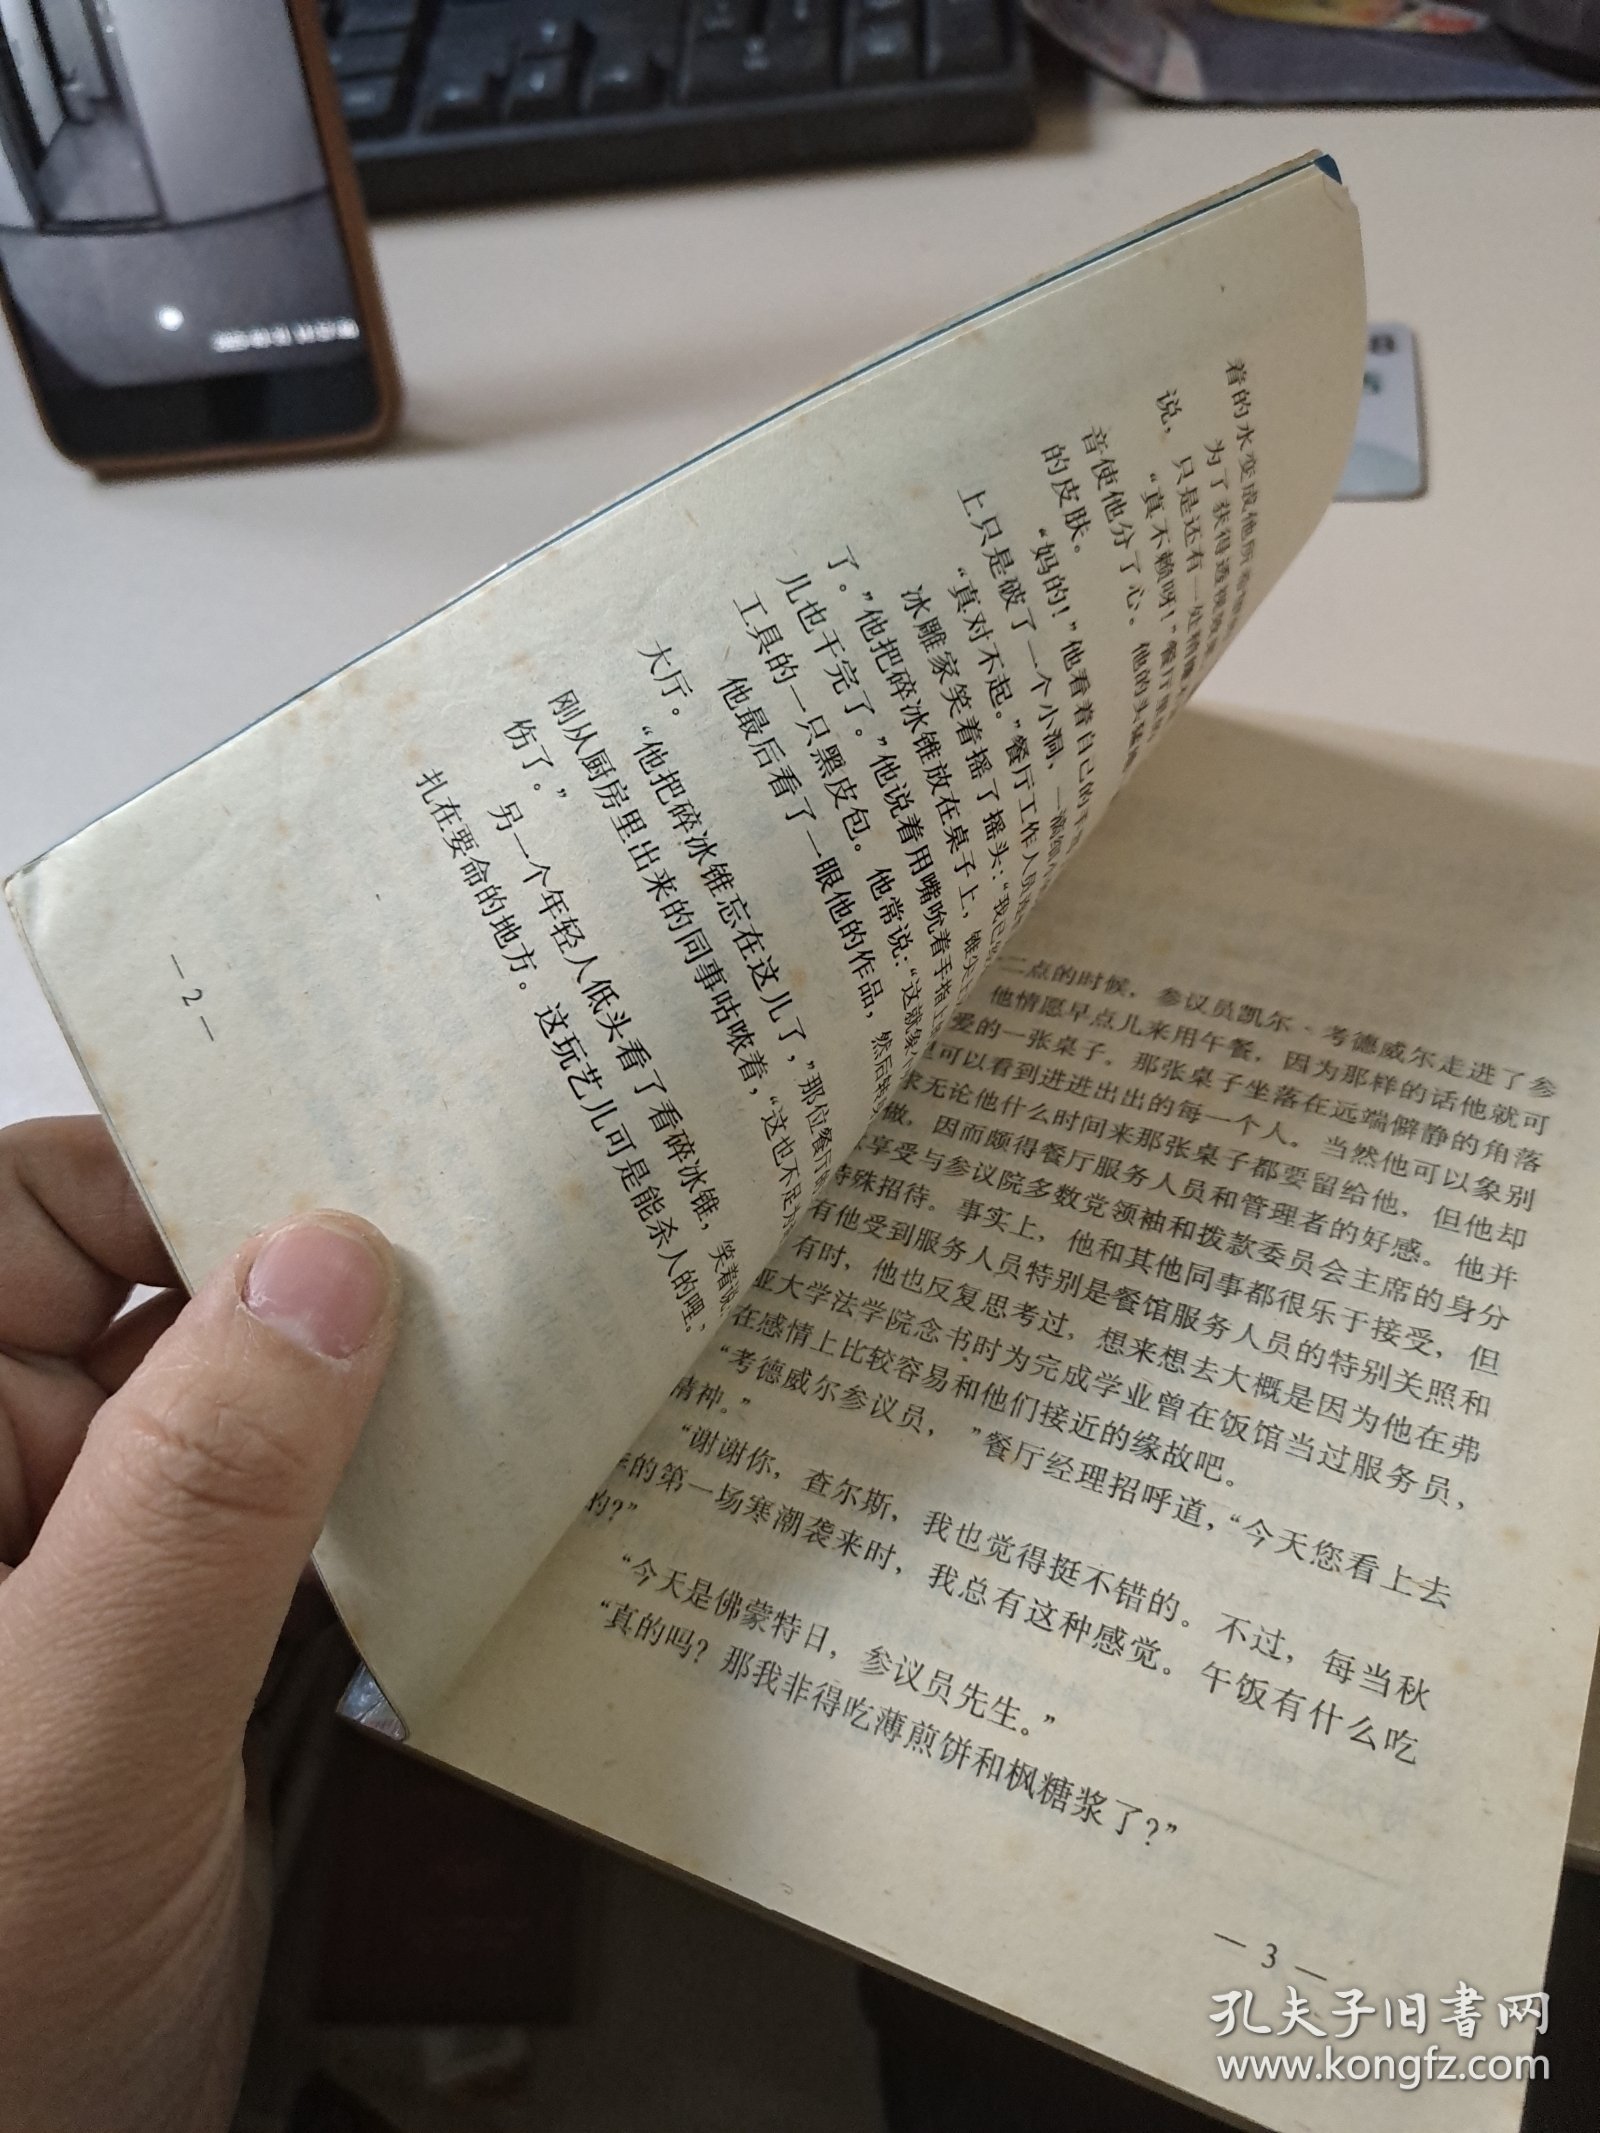 着的水变成他所
为了获得透视效果
说，只是还有一处稍嫌
“真不赖呀！”餐厅里的
音使他分了心。他的头猛
的皮肤。
“妈的！”他看着自己的手
上只是破了一个小洞，一滴
“真对不起。”餐厅工作人员
冰雕家笑着摇了摇头：“我已经
了。”他把碎冰锥放在桌子上，锥尖
儿也干完了。”他说着用嘴吮着手指上
工具的一只黑皮包。他常说：“这就象
他最后看了一眼他的作品，然后转
大厅。
“他把碎冰锥忘在这儿了，”那位餐厅
刚从厨房里出来的同事咕哝着，“这也不足为
伤了。”
另一个年轻人低头看了看碎冰锥，笑着说
扎在要命的地方。这玩艺儿可是能杀人的哩，
— 2 —
二点的时候，参议员凯尔·考德威尔走进了参
他情愿早点儿来用午餐，因为那样的话他就可
爱的一张桌子。那张桌子坐落在远端僻静的角落
里可以看到进进出出的每一个人。当然他可以象别
求无论他什么时间来那张桌子都要留给他，但他却
做，因而颇得餐厅服务人员和管理者的好感。他并
享受与参议院多数党领袖和拨款委员会主席的身分
特殊招待。事实上，他和其他同事都很乐于接受，但
有他受到服务人员特别是餐馆服务人员的特别关照和
有时，他也反复思考过，想来想去大概是因为他在弗
亚大学法学院念书时为完成学业曾在饭馆当过服务员，
在感情上比较容易和他们接近的缘故吧。
“考德威尔参议员，”餐厅经理招呼道，“今天您看上去
精神。”
“谢谢你，查尔斯，我也觉得挺不错的。不过，每当秋
季的第一场寒潮袭来时，我总有这种感觉。午饭有什么吃
的？”
“今天是佛蒙特日，参议员先生。”
“真的吗？那我非得吃薄煎饼和枫糖浆了？”
— 3 —
孔夫子旧书网
www.kongfz.com